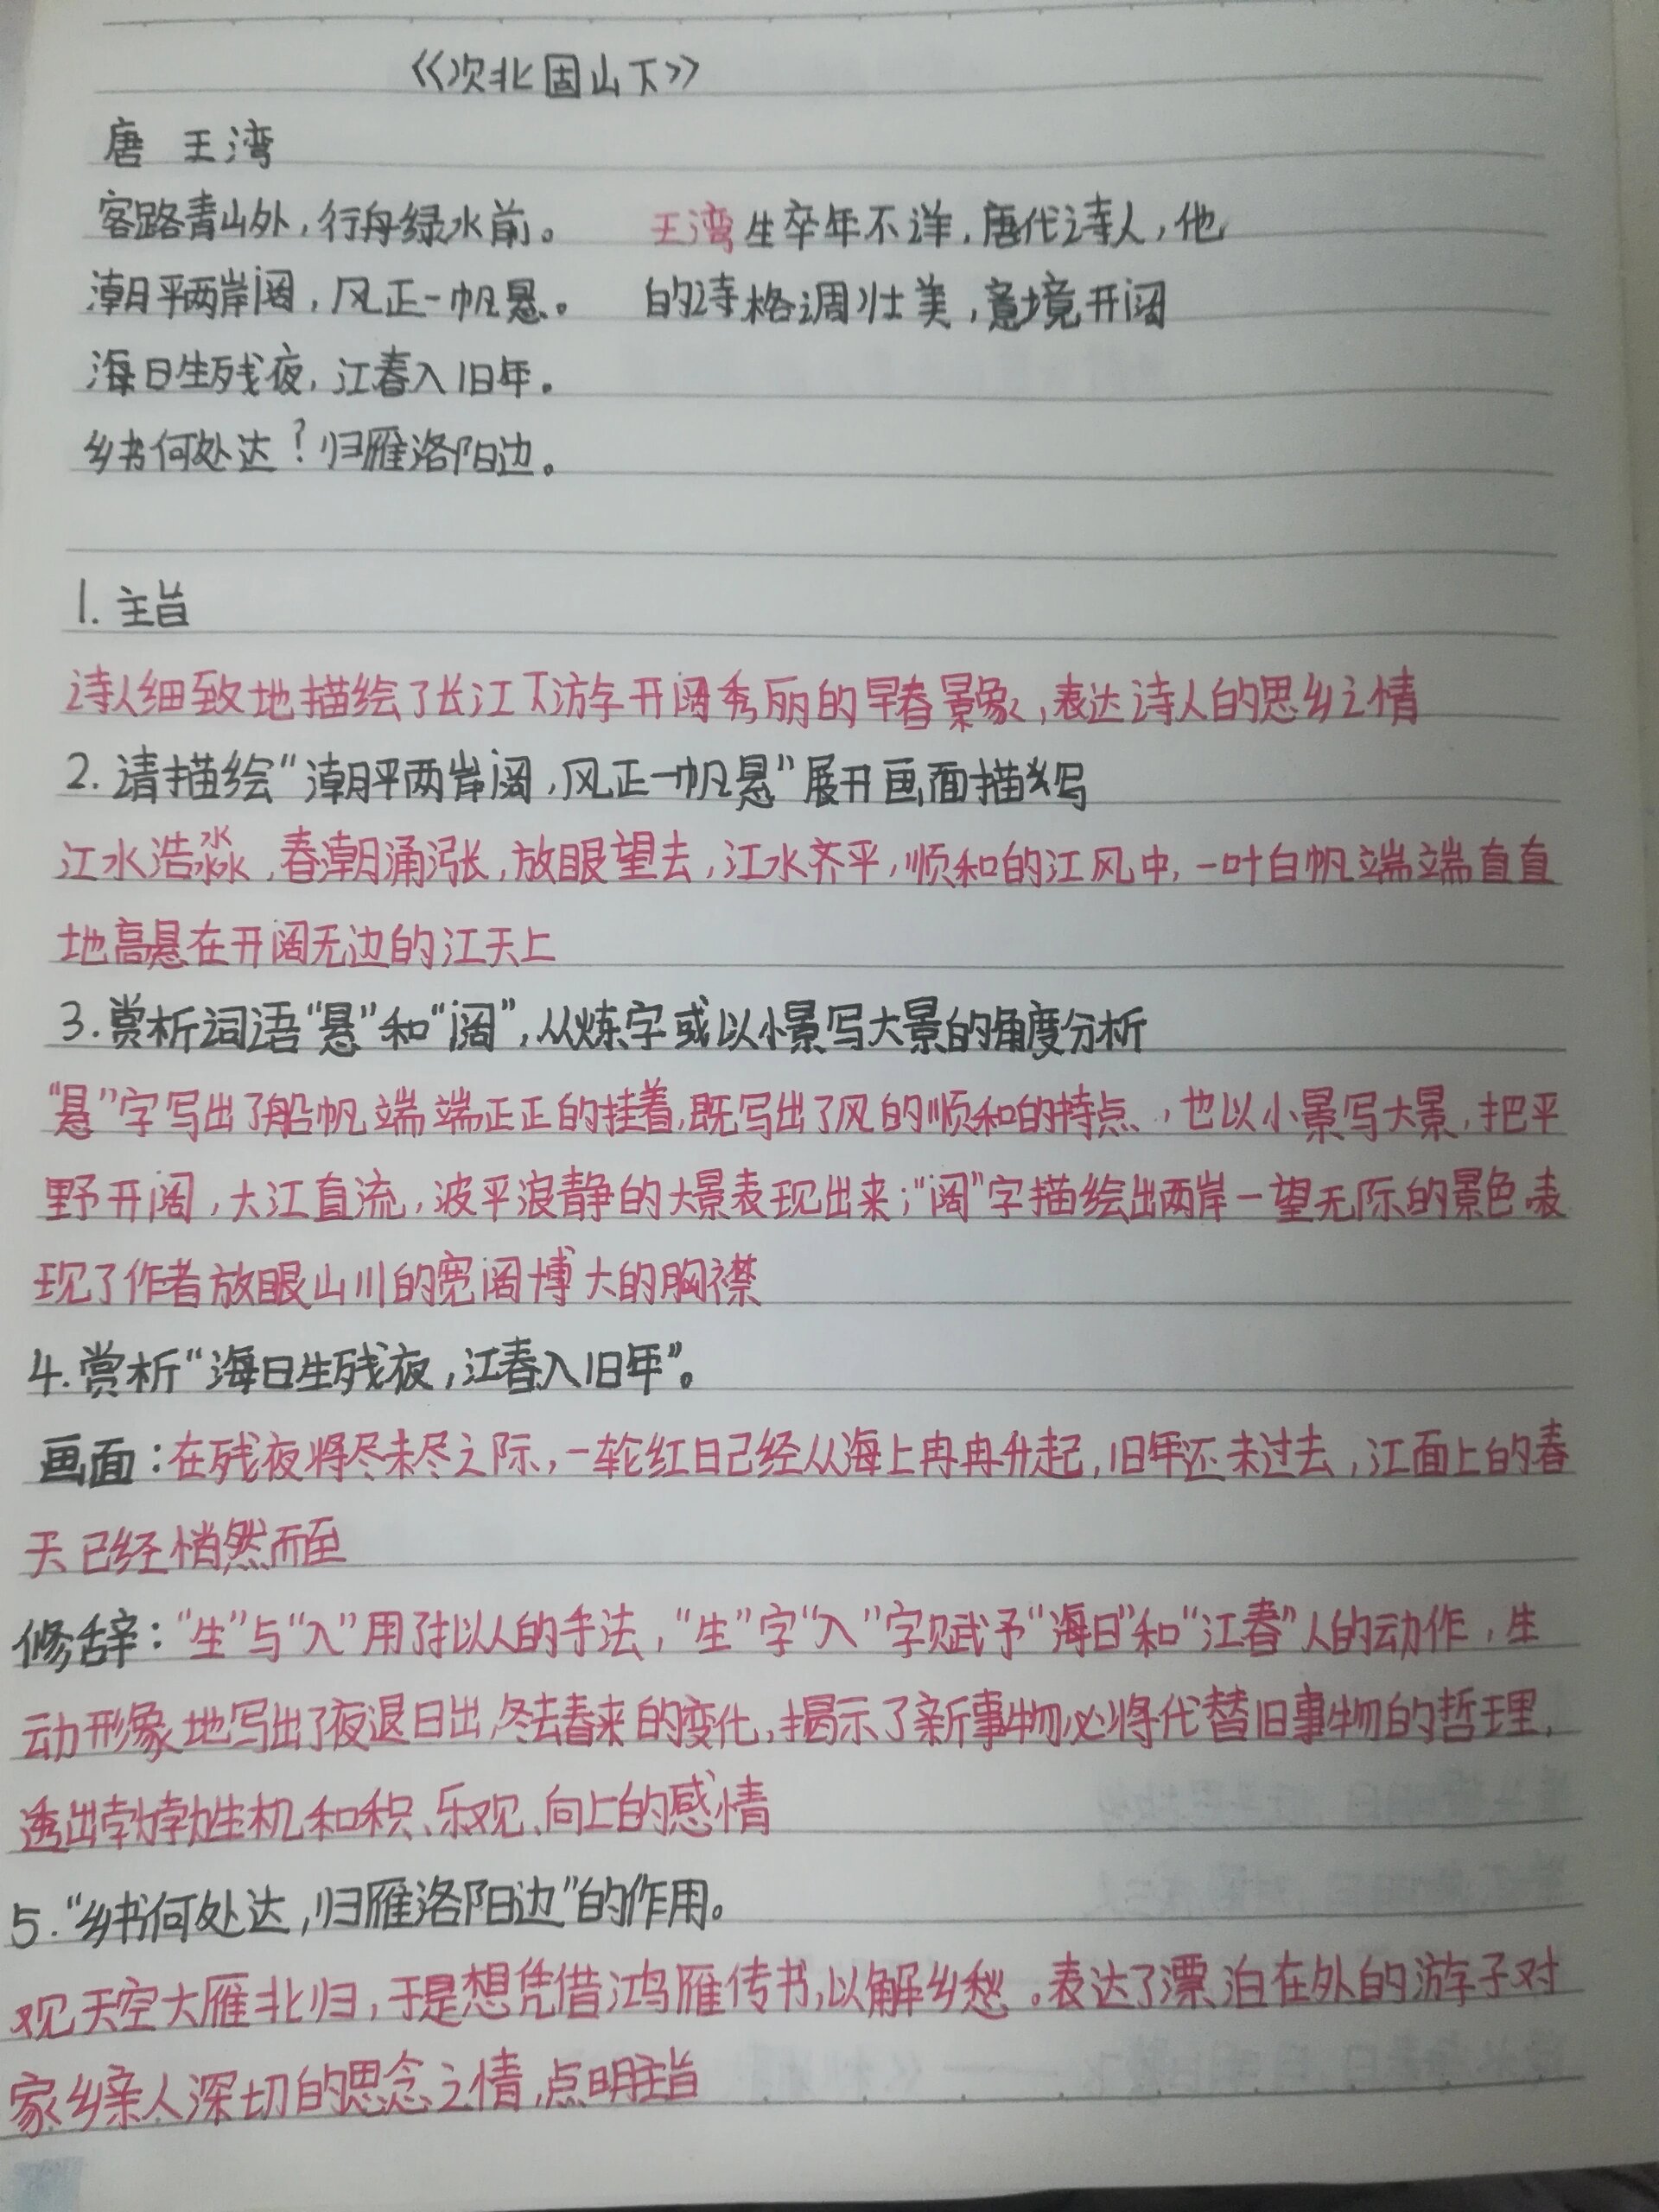 《次北固山下》
唐 王湾
客路青山外，行舟绿水前。 王湾生卒年不详，唐代诗人，他
潮平两岸阔，风正一帆悬。 的诗格调壮美，意境开阔
海日生残夜，江春入旧年。
乡书何处达？归雁洛阳边。
1. 主旨
诗人细致地描绘了长江下游字开阔秀丽的早春景象，表达诗人的思乡之情
2. 请描绘“潮平两岸阔，风正一帆悬”展开画面描写
江水浩淼，春潮涌涨，放眼望去，江水齐平，顺和的江风中，一叶白帆端端直直
地高悬在开阔无边的江天上
3. 赏析词语“悬”和“阔”，从炼字或以小景写大景的角度分析
“悬”字写出了船帆端端正正的挂着，既写出了风的顺和的特点，也以小景写大景，把平
野开阔，大江直流，波平浪静的大景表现出来；“阔”字描绘出两岸一望无际的景色，表
现了作者放眼山川的宽阔博大的胸襟
4. 赏析“海日生残夜，江春入旧年”。
画面：在残夜将尽未尽之际，一轮红日已经从海上冉冉升起，旧年还未过去，江面上的春
天已经悄然而至
修辞：“生”与“入”用了拟人的手法，“生”字“入”字赋予“海日”和“江春”人的动作，生
动形象地写出了夜退日出，冬去春来的变化，揭示了新事物必将代替旧事物的哲理，
透出勃勃生机和积、乐观、向上的感情
5. “乡书何处达，归雁洛阳边”的作用。
观天空大雁北归，于是想凭借鸿雁传书，以解乡愁。表达了漂泊在外的游子对
家乡亲人深切的思念之情，点明主旨